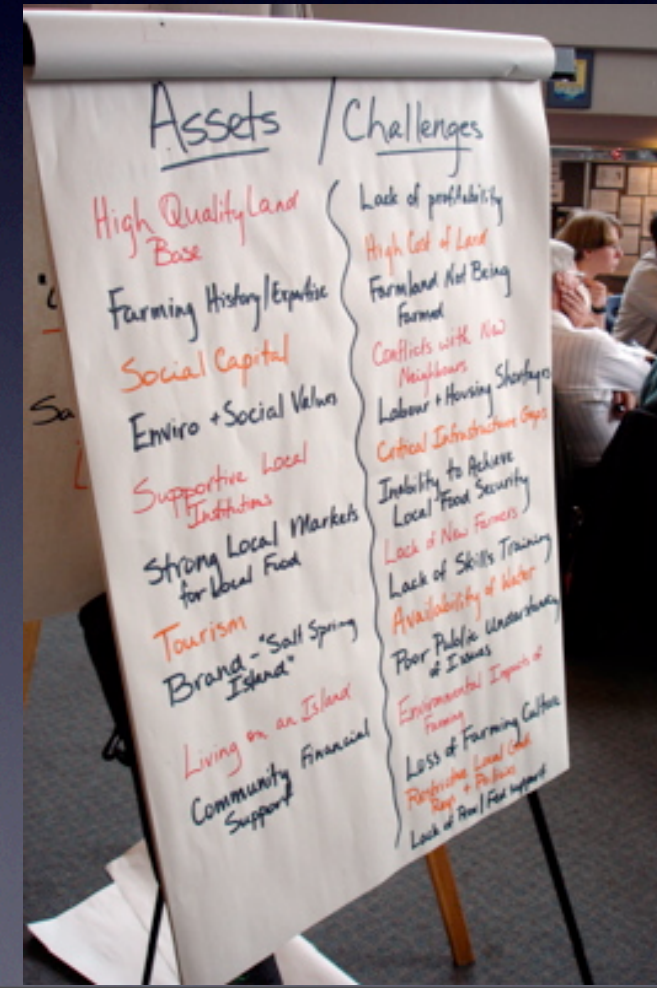 Assets / Challenges
High Quality Land
Base
Farming History/Expertise
Social Capital
Enviro + Social Values
Supportive Local
Institutions
Strong Local Markets
for Local Food
Tourism
Brand - "Salt Spring
Island"
Living on an Island
Community Financial
Support
Lack of profitability
High Cost of Land
Farmland Not Being
Farmed
Conflicts with New
Neighbours
Labour + Housing Shortages
Critical Infrastructure Gaps
Inability to Achieve
Local Food Security
Lack of New Farmers
Lack of Skills Training
Availability of Water
Poor Public Understanding
of Issues
Environmental Impacts of
Farming
Loss of Farming Culture
Restrictive Local Govt
Regs + Policies
Lack of Prov/Fed support
Sa